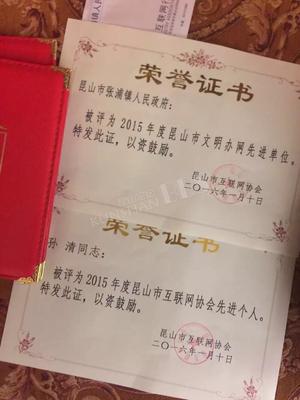 荣誉证书
昆山市张浦镇人民政府：
被评为2015年度昆山市文明办网先进单位。
特发此证，以资鼓励。
昆山市互联网协会
二〇一六年一月十日
荣誉证书
孙 清同志：
被评为2015年度昆山市互联网协会先进个人。
特发此证，以资鼓励。
昆山市互联网协会
二〇一六年一月十日